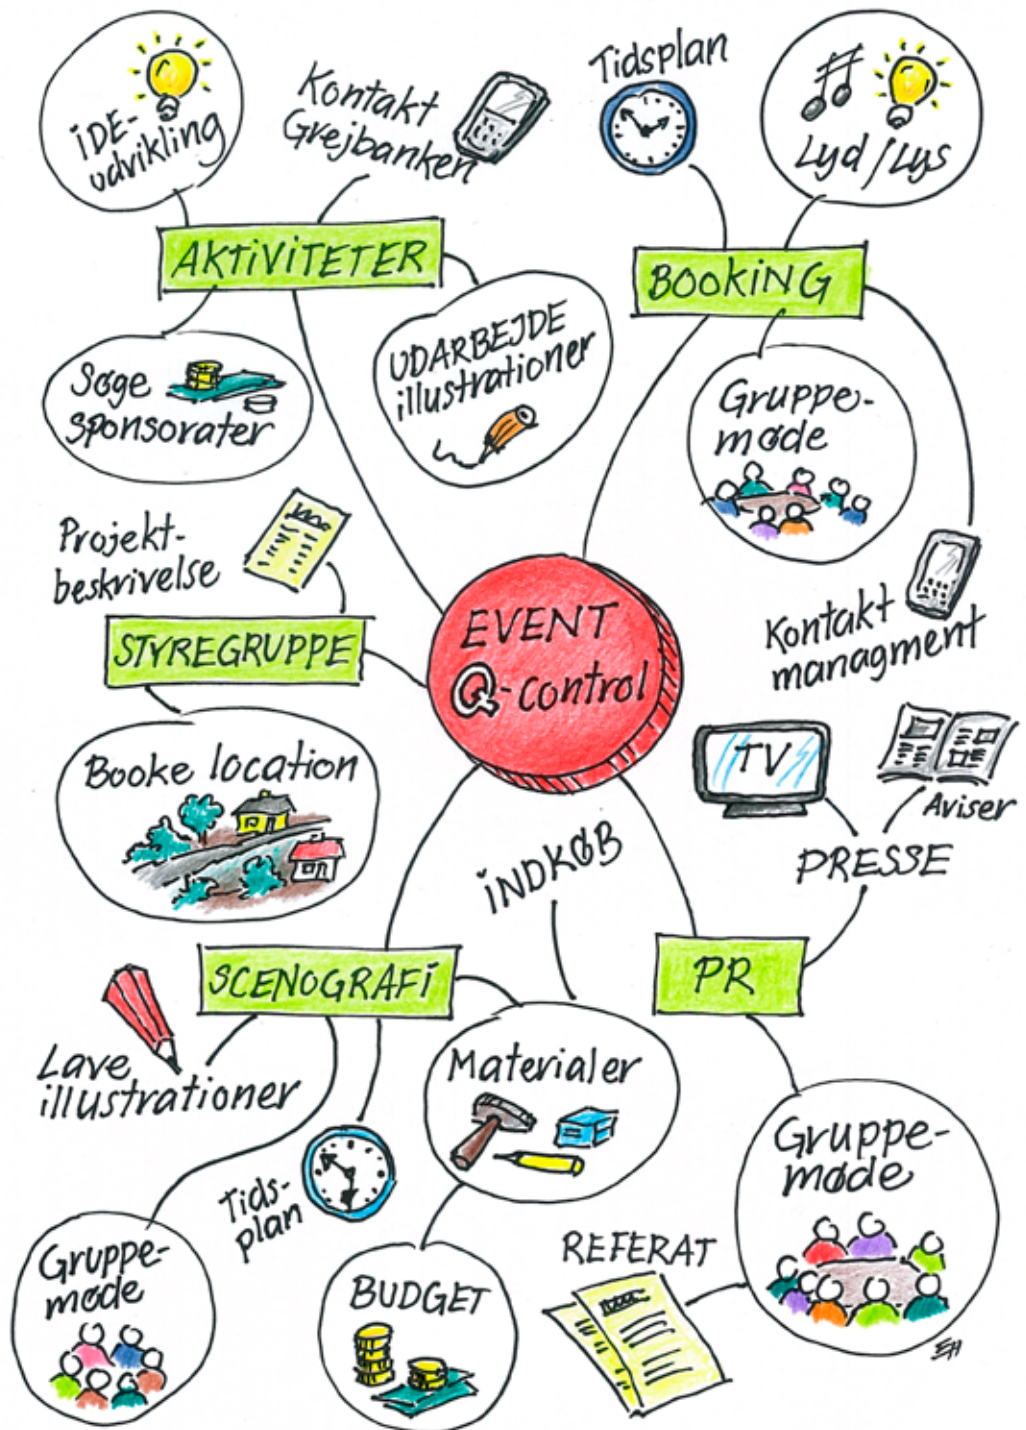 iDE-
udvikling
Kontakt
Grejbanken
Tidsplan
Lyd / Lys
AKTiViTETER
BOOKiNG
Søge
sponsorater
UDARBEJDE
illustrationer
Gruppe-
møde
Projekt-
beskrivelse
STYREGRUPPE
EVENT
Q-control
Kontakt
managment
Booke location
TV
Aviser
PRESSE
iNDKØB
SCENOGRAFi
PR
Lave
illustrationer
Materialer
Tids-
plan
Gruppe-
møde
Gruppe-
møde
BUDGET
REFERAT
EH